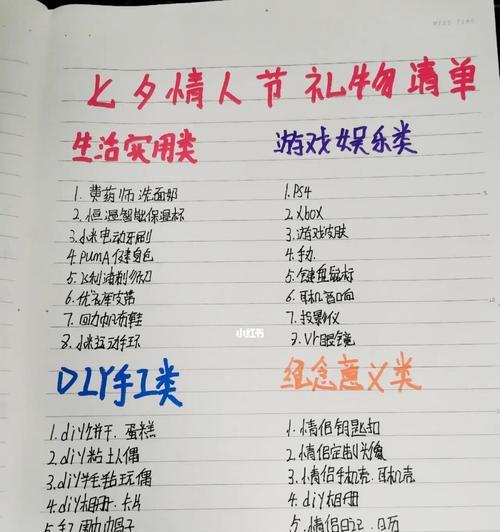 MISS TIME
七夕情人节礼物清单
生活实用类
1. 费药师洗面奶
2. 恒温智能保温杯
3. 小米电动牙刷
4. PUMA健身包
5. 飞利浦剃须刀
6. 优衣库皮带
7. 回力帆布鞋
8. 小米运动手环
游戏娱乐类
1. PS4
2. Xbox
3. 游戏皮肤
4. 手办
5. 键盘鼠标
6. 耳机音响
7. 投影仪
8. Vr眼镜
小红书
DIY手工类
1. diy饼干、蛋糕
2. diy粘土人偶
3. diy羊毛毡玩偶
4. diy相册、卡片
5. 手工围巾帽子
纪念意义类
1. 情侣钥匙扣
2. 情侣定制头像
3. 情侣手机壳、耳机壳
4. diy相册
5. 情侣日记、日历